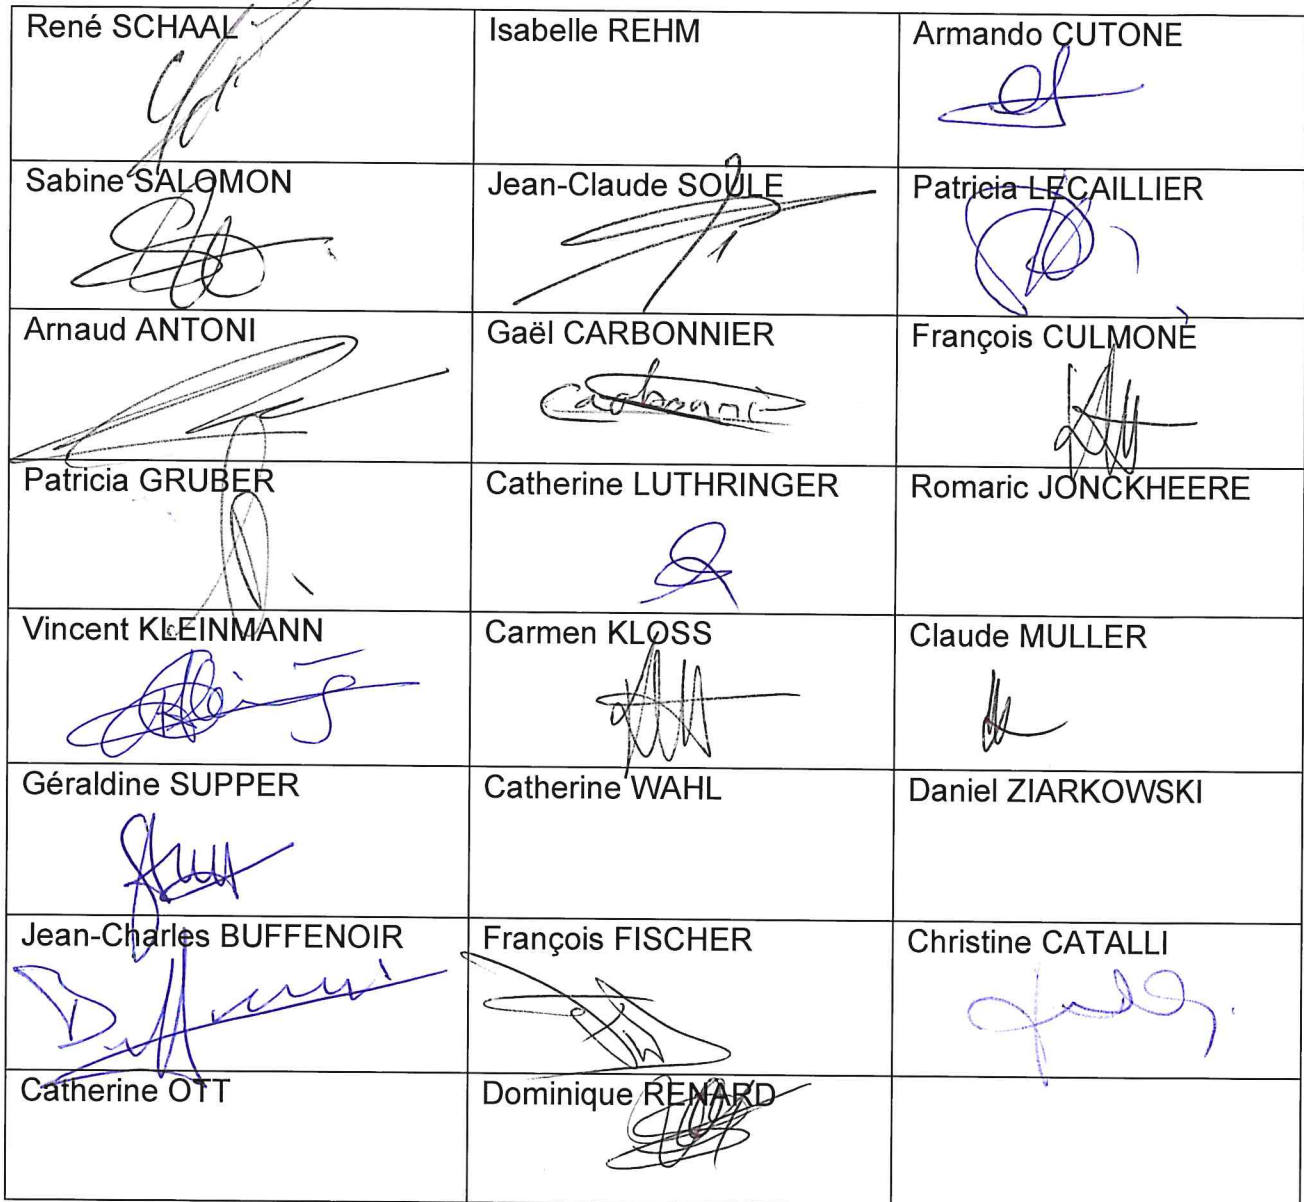 René SCHAAL
Isabelle REHM
Armando CUTONE
Sabine SALOMON
Jean-Claude SOULE
Patricia LECAILLIER
Arnaud ANTONI
Gaël CARBONNIER
François CULMONE
Patricia GRUBER
Catherine LUTHRINGER
Romaric JONCKHEERE
Vincent KLEINMANN
Carmen KLOSS
Claude MULLER
Géraldine SUPPER
Catherine WAHL
Daniel ZIARKOWSKI
Jean-Charles BUFFENOIR
François FISCHER
Christine CATALLI
Catherine OTT
Dominique RENARD